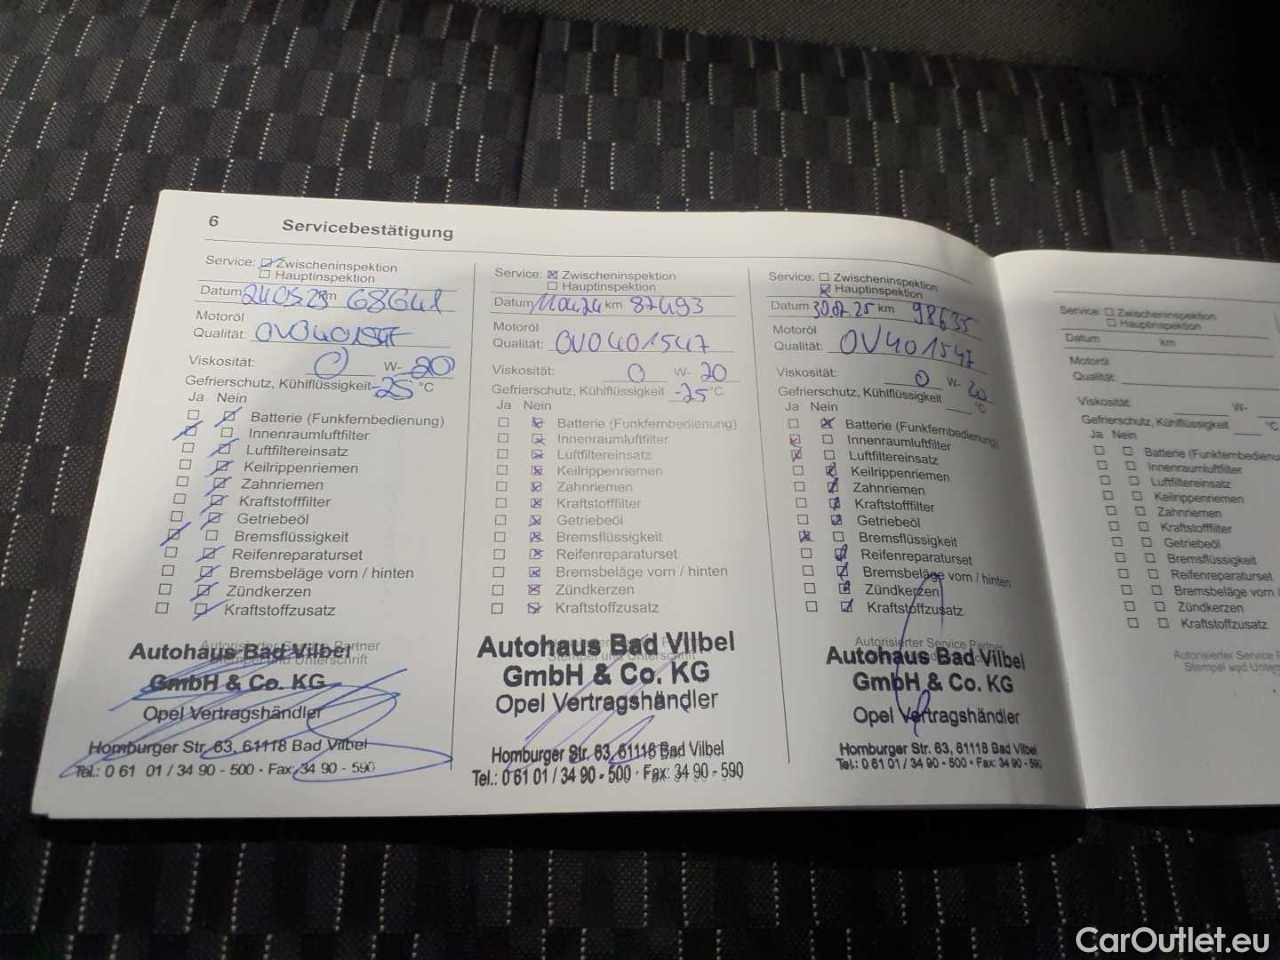 6 Servicebestätigung
Service: Zwischeninspektion
Hauptinspektion
Datum 24.05.23 km 68641
Motoröl
Qualität: OV0401547
Viskosität: 0 W- 20
Gefrierschutz, Kühlflüssigkeit -25 °C
Ja Nein
Batterie (Funkfernbedienung)
Innenraumluftfilter
Luftfiltereinsatz
Keilrippenriemen
Zahnriemen
Kraftstofffilter
Getriebeöl
Bremsflüssigkeit
Reifenreparaturset
Bremsbeläge vorn / hinten
Zündkerzen
Kraftstoffzusatz
Autorisierter Service Partner
Stempel und Unterschrift
Autohaus Bad Vilbel
GmbH & Co. KG
Opel Vertragshändler
Homburger Str. 63, 61118 Bad Vilbel
Tel.: 0 61 01 / 34 90 - 500 · Fax: 34 90 - 590
Service: Zwischeninspektion
Hauptinspektion
Datum 11.04.24 km 87493
Motoröl
Qualität: OV0401547
Viskosität: 0 W- 20
Gefrierschutz, Kühlflüssigkeit -25 °C
Ja Nein
Batterie (Funkfernbedienung)
Innenraumluftfilter
Luftfiltereinsatz
Keilrippenriemen
Zahnriemen
Kraftstofffilter
Getriebeöl
Bremsflüssigkeit
Reifenreparaturset
Bremsbeläge vorn / hinten
Zündkerzen
Kraftstoffzusatz
Stempel und Unterschrift
Autohaus Bad Vilbel
GmbH & Co. KG
Opel Vertragshändler
Homburger Str. 63, 61118 Bad Vilbel
Tel.: 0 61 01 / 34 90 - 500 · Fax: 34 90 - 590
Service: Zwischeninspektion
Hauptinspektion
Datum 30.07.25 km 98635
Motoröl
Qualität: OV401547
Viskosität: 0 W- 20
Gefrierschutz, Kühlflüssigkeit °C
Ja Nein
Batterie (Funkfernbedienung)
Innenraumluftfilter
Luftfiltereinsatz
Keilrippenriemen
Zahnriemen
Kraftstofffilter
Getriebeöl
Bremsflüssigkeit
Reifenreparaturset
Bremsbeläge vorn / hinten
Zündkerzen
Kraftstoffzusatz
Autorisierter Service Partner
Autohaus Bad Vilbel
GmbH & Co. KG
Opel Vertragshändler
Homburger Str. 63, 61118 Bad Vilbel
Tel.: 0 61 01 / 34 90 - 500 · Fax: 34 90 - 590
Service: Zwischeninspektion
Hauptinspektion
Datum km
Motoröl
Qualität:
Viskosität: W-
Gefrierschutz, Kühlflüssigkeit °C
Ja Nein
Batterie (Funkfernbedienu
Innenraumluftfilter
Luftfiltereinsatz
Keilrippenriemen
Zahnriemen
Kraftstofffilter
Getriebeöl
Bremsflüssigkeit
Reifenreparaturset
Bremsbeläge vorn /
Zündkerzen
Kraftstoffzusatz
Autorisierter Service
Stempel und Unters
CarOutlet.eu